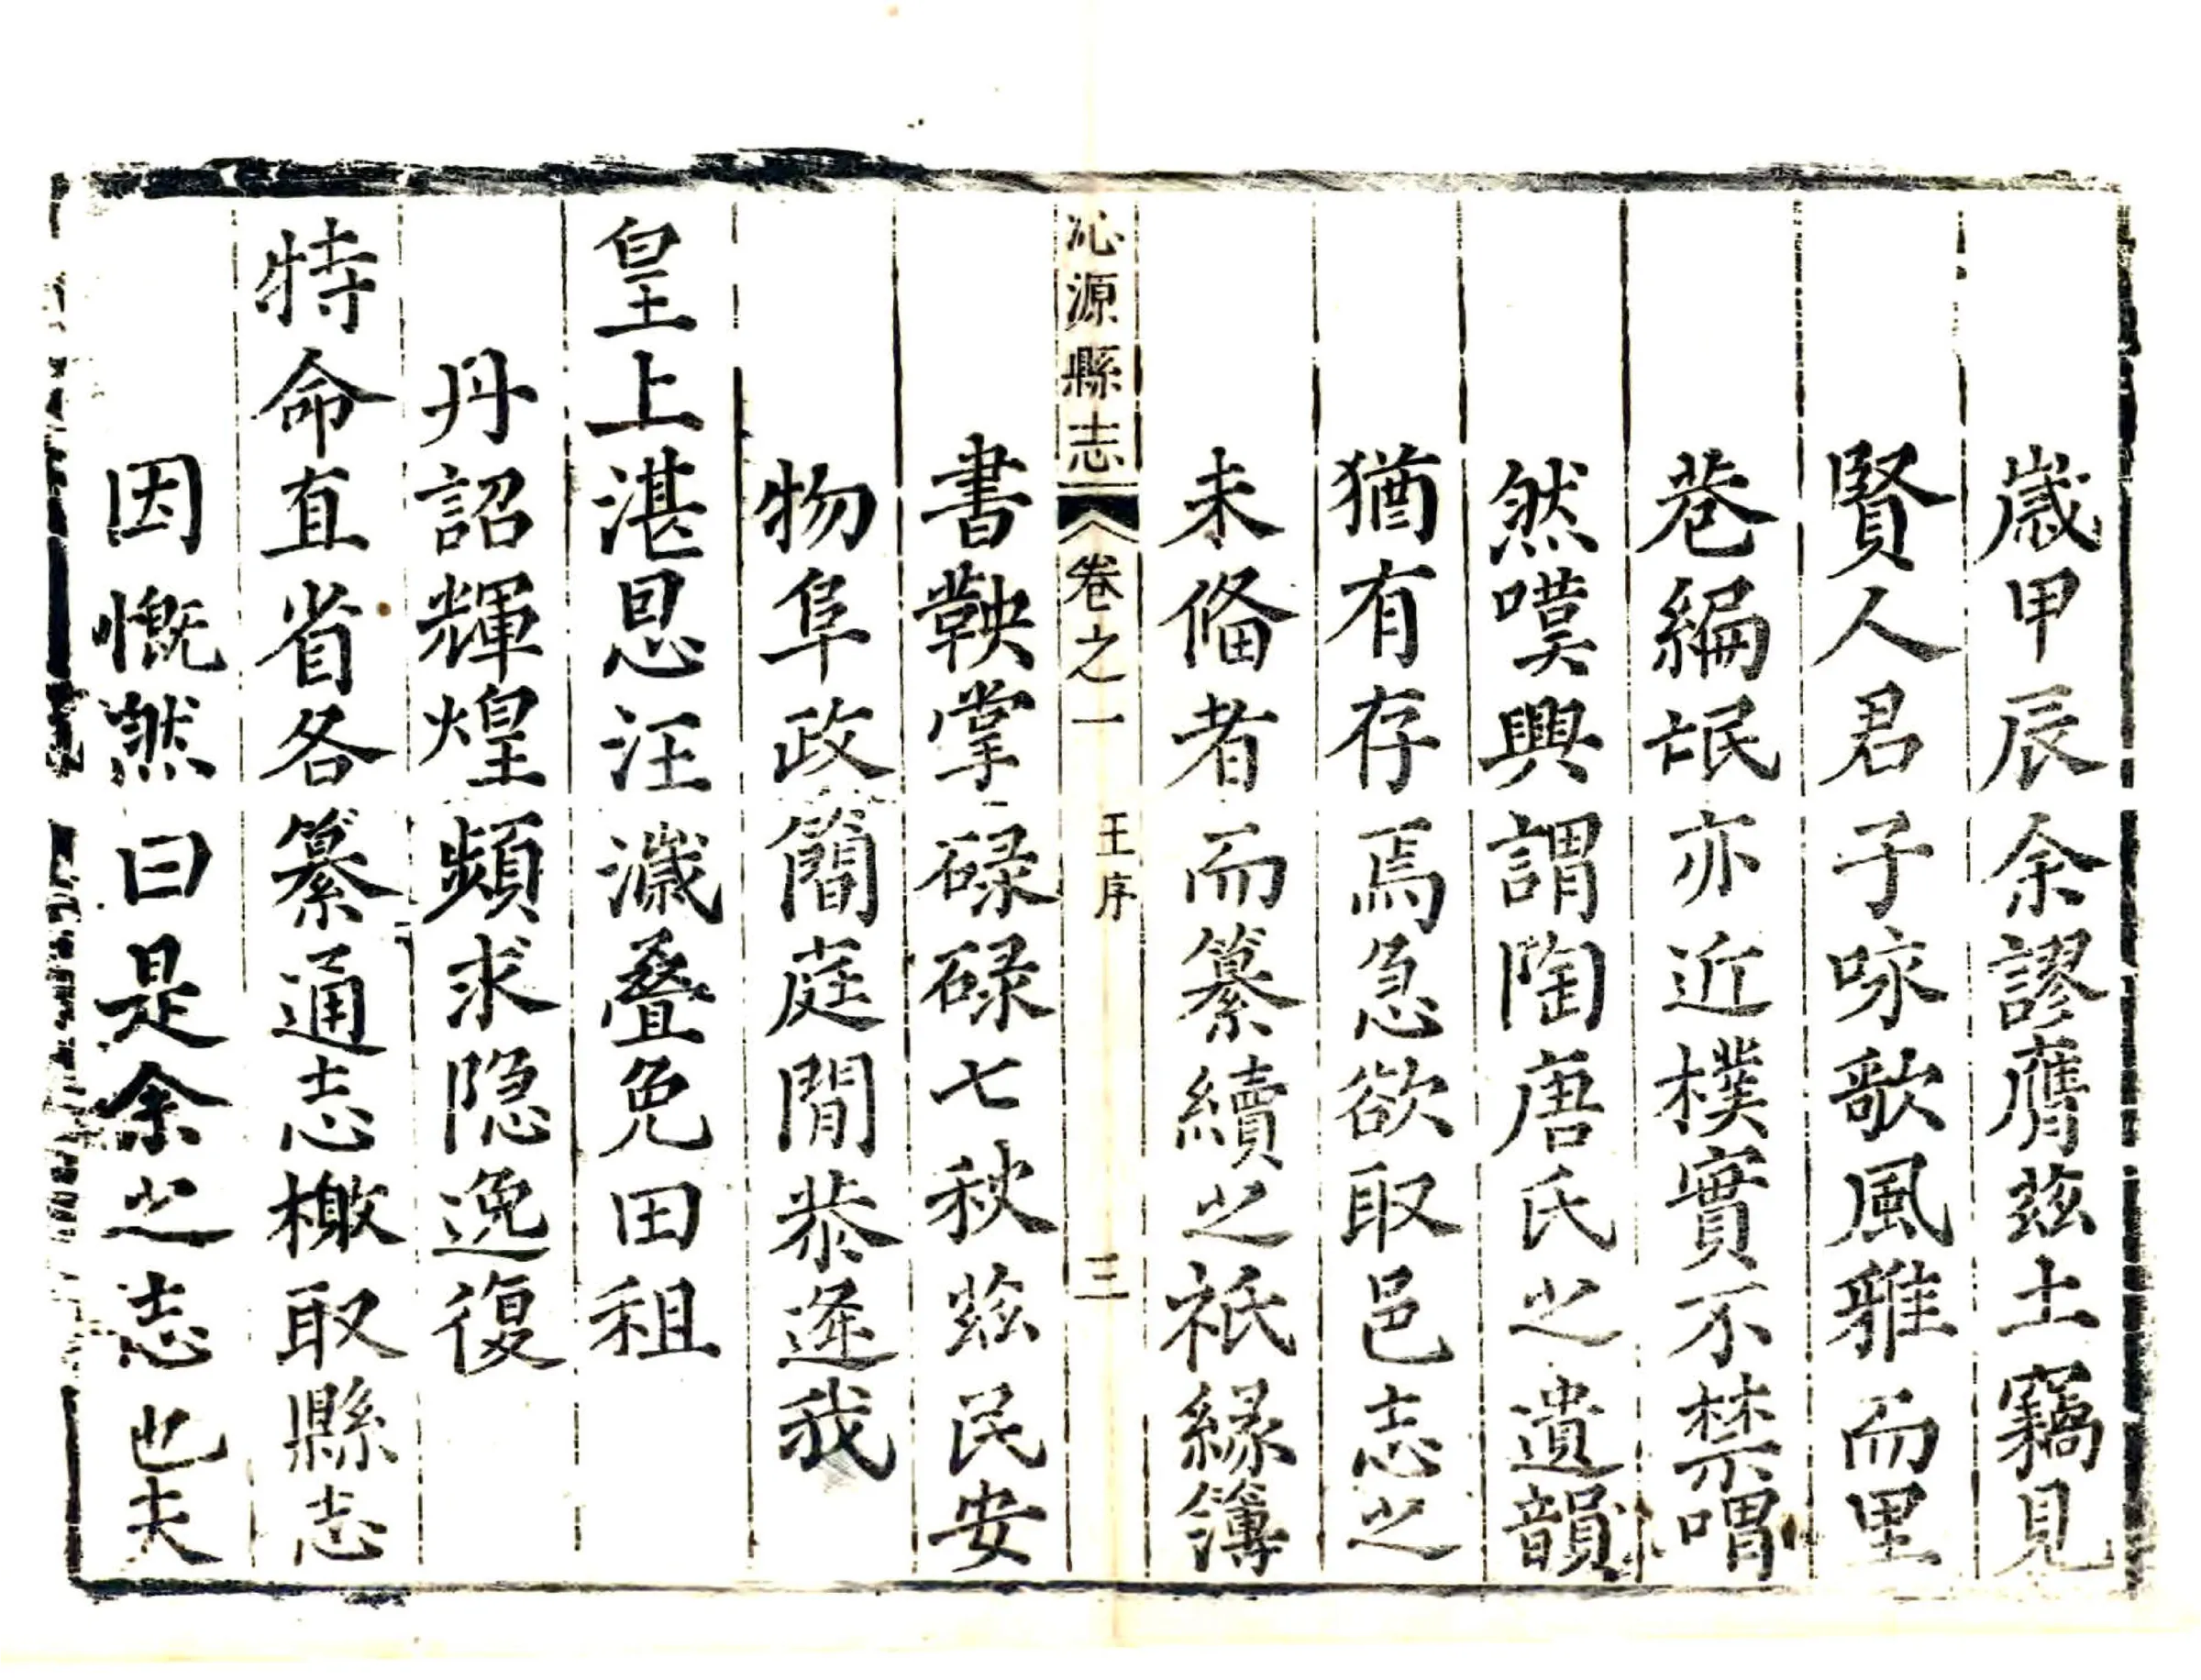 歲甲辰余謬膺茲土竊見
賢人君子咏歌風雅而里
巷編氓亦近樸實不禁喟
然嘆興謂陶唐氏之遺韻
猶有存焉急欲取邑志之
未俻者而纂續之祇緣簿
沁源縣志 卷之一 王序 三
書鞅掌碌碌七秋茲民安
物阜政簡庭閒恭逢我
皇上湛恩汪濊疊免田租
丹詔輝煌頻求隐逸復
特命直省各纂通志檄取縣志
因慨然曰是余之志也夫